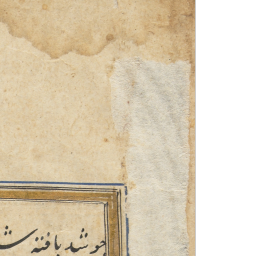 چو شد بافته